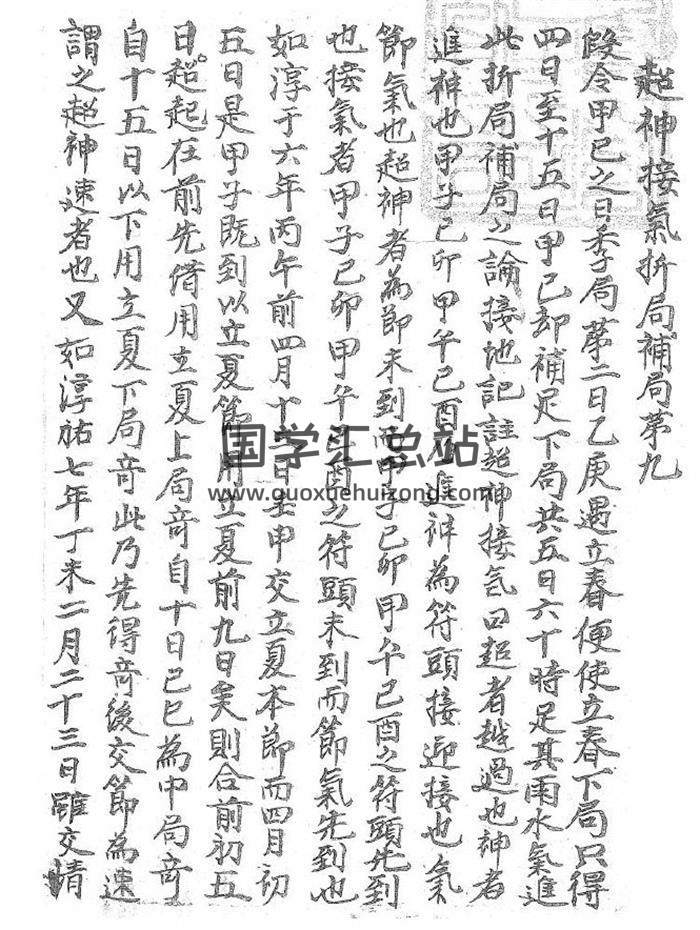 超神接氣折局補局第九
假令甲己之日季局苐二日乙庚遇立春便使立春下局只得
四日至十五日甲己却補足下局共五日六十時足其雨水氣進
此折局補局之論接池記註超神接氣曰超者越過也神者
進神也甲子己卯甲午己酉 進神為符頭接迎接也氣
節氣也超神者為節未到而甲子己卯甲午己酉之符頭先到
也接氣者甲子己卯甲午己酉之符頭未到而節氣先到也
如淳于六年丙午前四月十 日壬申交立夏本節而四月初
五日是甲子既到以立夏節 用立夏前九日矣則合前初五
日超起在前先借用立夏上局竒自十日己巳為中局竒
自十五日以下用立夏下局竒此乃先得竒後交節為速
謂之超神速者也又如淳祐七年丁未二月二十三日雖交情
国学汇总站
www.guoxuehuizong.com